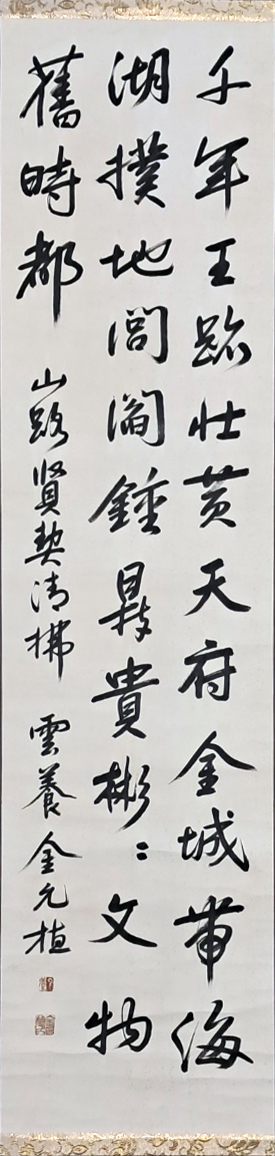 千年王跡壯黃天府金城帶海
湖撲地閭閻鍾鼎貴彬〻文物
舊時都 山路賢契清拂 雲養金允植